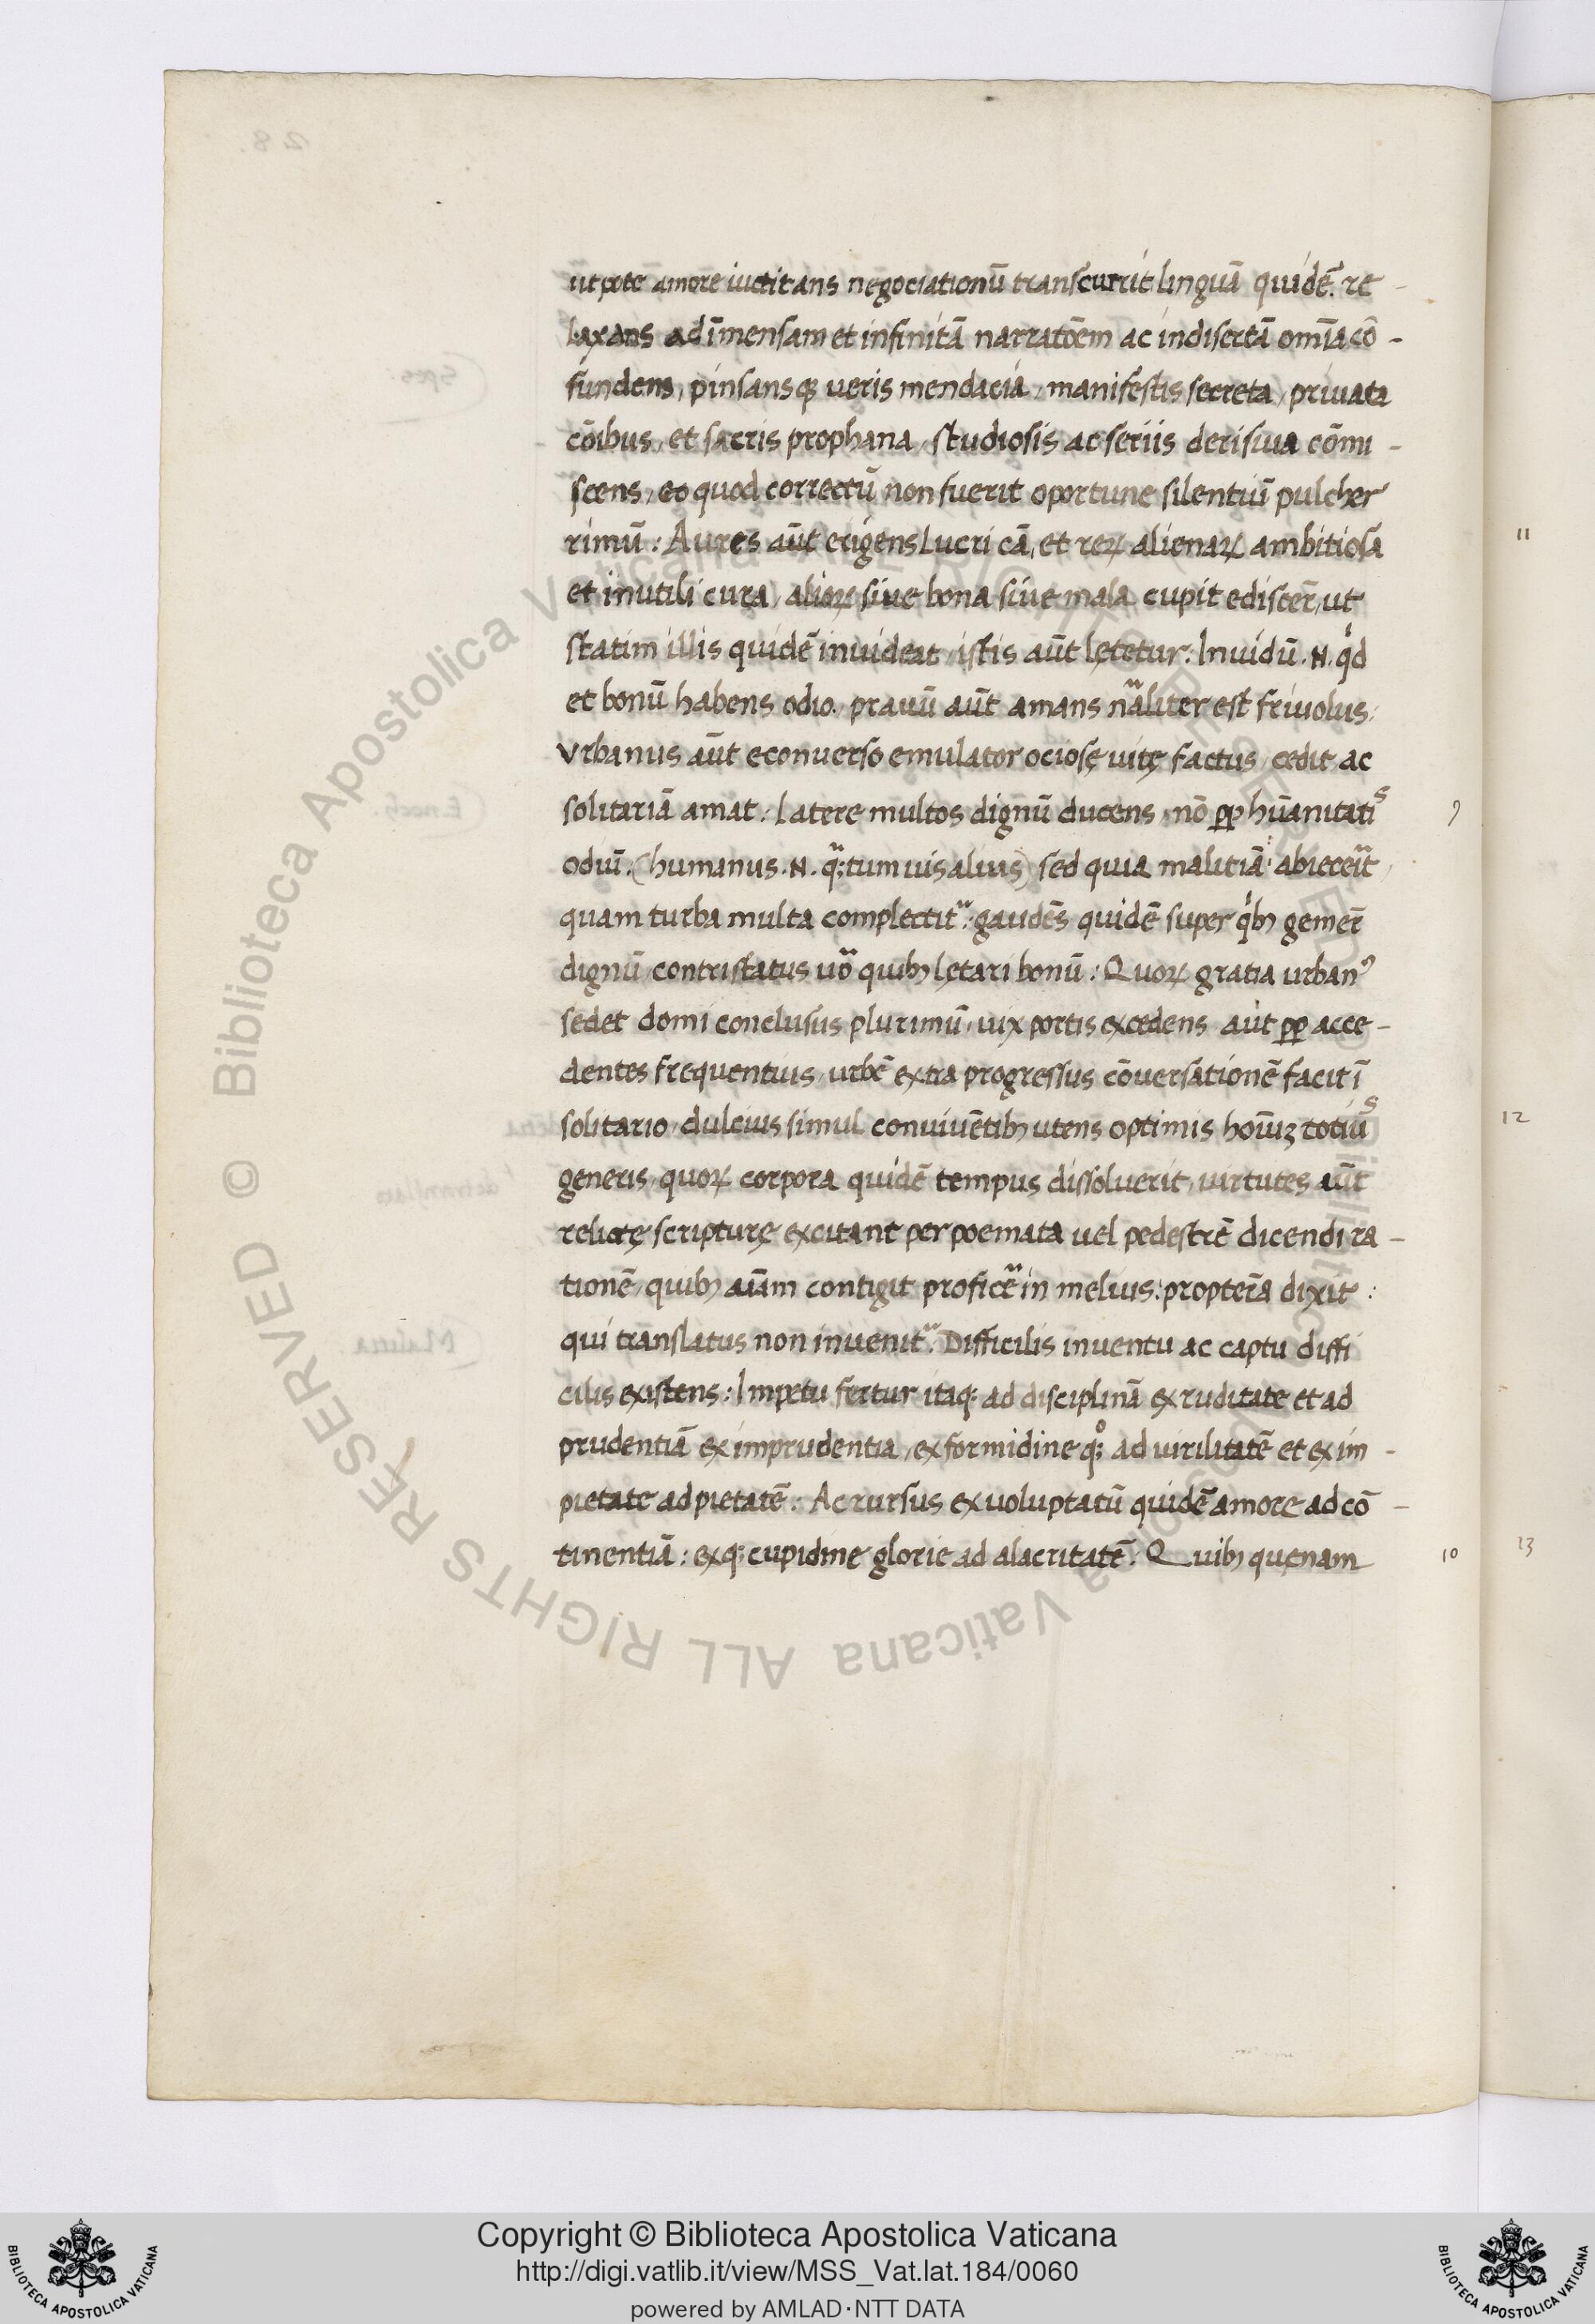 ut pote amore iuctitans negociationū transcurrit linguā quidē: re-
laxans ad īmensam et infinitā narratōem ac indisertā omīa cō-
fundens, pinsansq; ueris mendacia, manifestis secreta, priuata
cōibus, et sacris prophana, studiosis ac seriis derisiua cōmi-
scens, eo quod correctū non fuerit oportune silentiū pulcher
rimū: Aures aūt erigens lucri cā, et reꝝ alienaꝝ ambitiosa
et inutili cura, alioꝝ siue bona siue mala cupit ediscer̄, ut
statim illis quidē inuideat, istis aūt lętetur: Inuidū .N. qd
et bonū habens odio, prauū aūt amans nāliter est friuolus:
Vrbanus aūt econuerso emulator ociosę uitę factus, cedit ac
solitariā amat: Latere multos dignū ducens, nō ꝓp hūanitatis
odiū: (humanus .N. q;tumuis alius) sed quia malitiā abiecerit,
quam turba multa complectit: gaudēs quidē super qbꝫ gemer̄
dignū, contristatus uō quibꝫ lętari bonū: Quoꝝ gratia urbanꝰ
sedet domi conclusus plurimū, uix portis excedens aūt ꝓp acce-
dentes frequentius, urbē extra progressus cōuersationē facit ī
solitario, dulcius simul conuiuētibꝫ utens optimis hoīuꝫ totius
generis, quoꝝ corpora quidē tempus dissoluerit, uirtutes aūt
relictę scripturę excitant per poemata uel pedestrē dicendi ra-
tionē, quibꝫ aīam contigit proficē in melius: propterā dixit:
qui translatus non inuenit: Difficilis inuentu ac captu diffi
cilis existens: Impetu fertur itaq; ad disciplinā ex ruditate et ad
prudentiā ex imprudentia, ex formidine q; ad uirilitatē et ex im-
pietate ad pietatē: Ac rursus ex uoluptatū quidē amore ad cō-
tinentiā: exq; cupidine glorie ad alacritatē: Quibꝫ quęnam
9
10
11
12
13
Biblioteca Apostolica Vaticana ALL RIGHTS RESERVED © Biblioteca Apostolica Vaticana ALL RIGHTS RESERVED ©
Copyright © Biblioteca Apostolica Vaticana
http://digi.vatlib.it/view/MSS_Vat.lat.184/0060
powered by AMLAD·NTT DATA
BIBLIOTECA APOSTOLICA VATICANA
BIBLIOTECA APOSTOLICA VATICANA